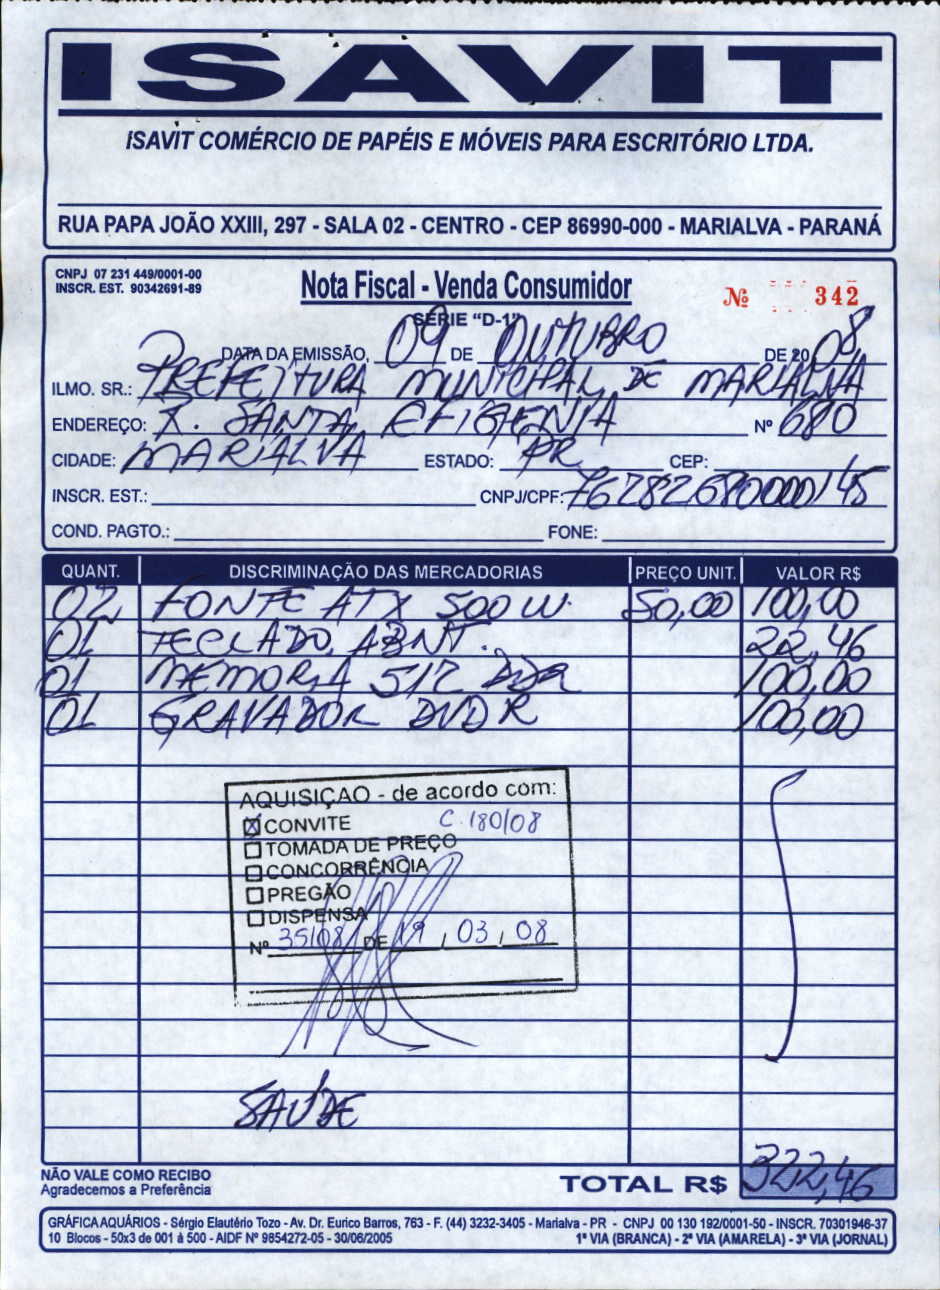 ISAVIT
ISAVIT COMÉRCIO DE PAPÉIS E MÓVEIS PARA ESCRITÓRIO LTDA.
RUA PAPA JOÃO XXIII, 297 - SALA 02 - CENTRO - CEP 86990-000 - MARIALVA - PARANÁ
CNPJ 07 231 449/0001-00
INSCR. EST. 90342691-89
Nota Fiscal - Venda Consumidor
Nº 342
SÉRIE "D-1"
DATA DA EMISSÃO, 09 DE OUTUBRO DE 2008
ILMO. SR.: PREFEITURA MUNICIPAL DE MARIALVA
ENDEREÇO: R. SANTA EFIGENIA Nº 680
CIDADE: MARIALVA ESTADO: PR CEP:
INSCR. EST.: CNPJ/CPF: 76282680000/45
COND. PAGTO.: FONE:
QUANT. DISCRIMINAÇÃO DAS MERCADORIAS PREÇO UNIT. VALOR R$
02 FONTE ATX 500 W. 50,00 100,00
01 TECLADO ABNT. 22,46
01 MEMORIA 512 DDR 100,00
01 GRAVADOR DVD R 100,00
AQUISIÇAO - de acordo com:
CONVITE C. 180/08
TOMADA DE PREÇO
CONCORRÊNCIA
PREGÃO
DISPENSA
Nº 35/08 DE 19 / 03 / 08
SAÚDE
NÃO VALE COMO RECIBO
Agradecemos a Preferência
TOTAL R$ 322,46
GRÁFICA AQUÁRIOS - Sérgio Elautério Tozo - Av. Dr. Eurico Barros, 763 - F. (44) 3232-3405 - Marialva - PR - CNPJ 00 130 192/0001-50 - INSCR. 70301946-37
10 Blocos - 50x3 de 001 à 500 - AIDF Nº 9854272-05 - 30/06/2005 1ª VIA (BRANCA) - 2ª VIA (AMARELA) - 3ª VIA (JORNAL)